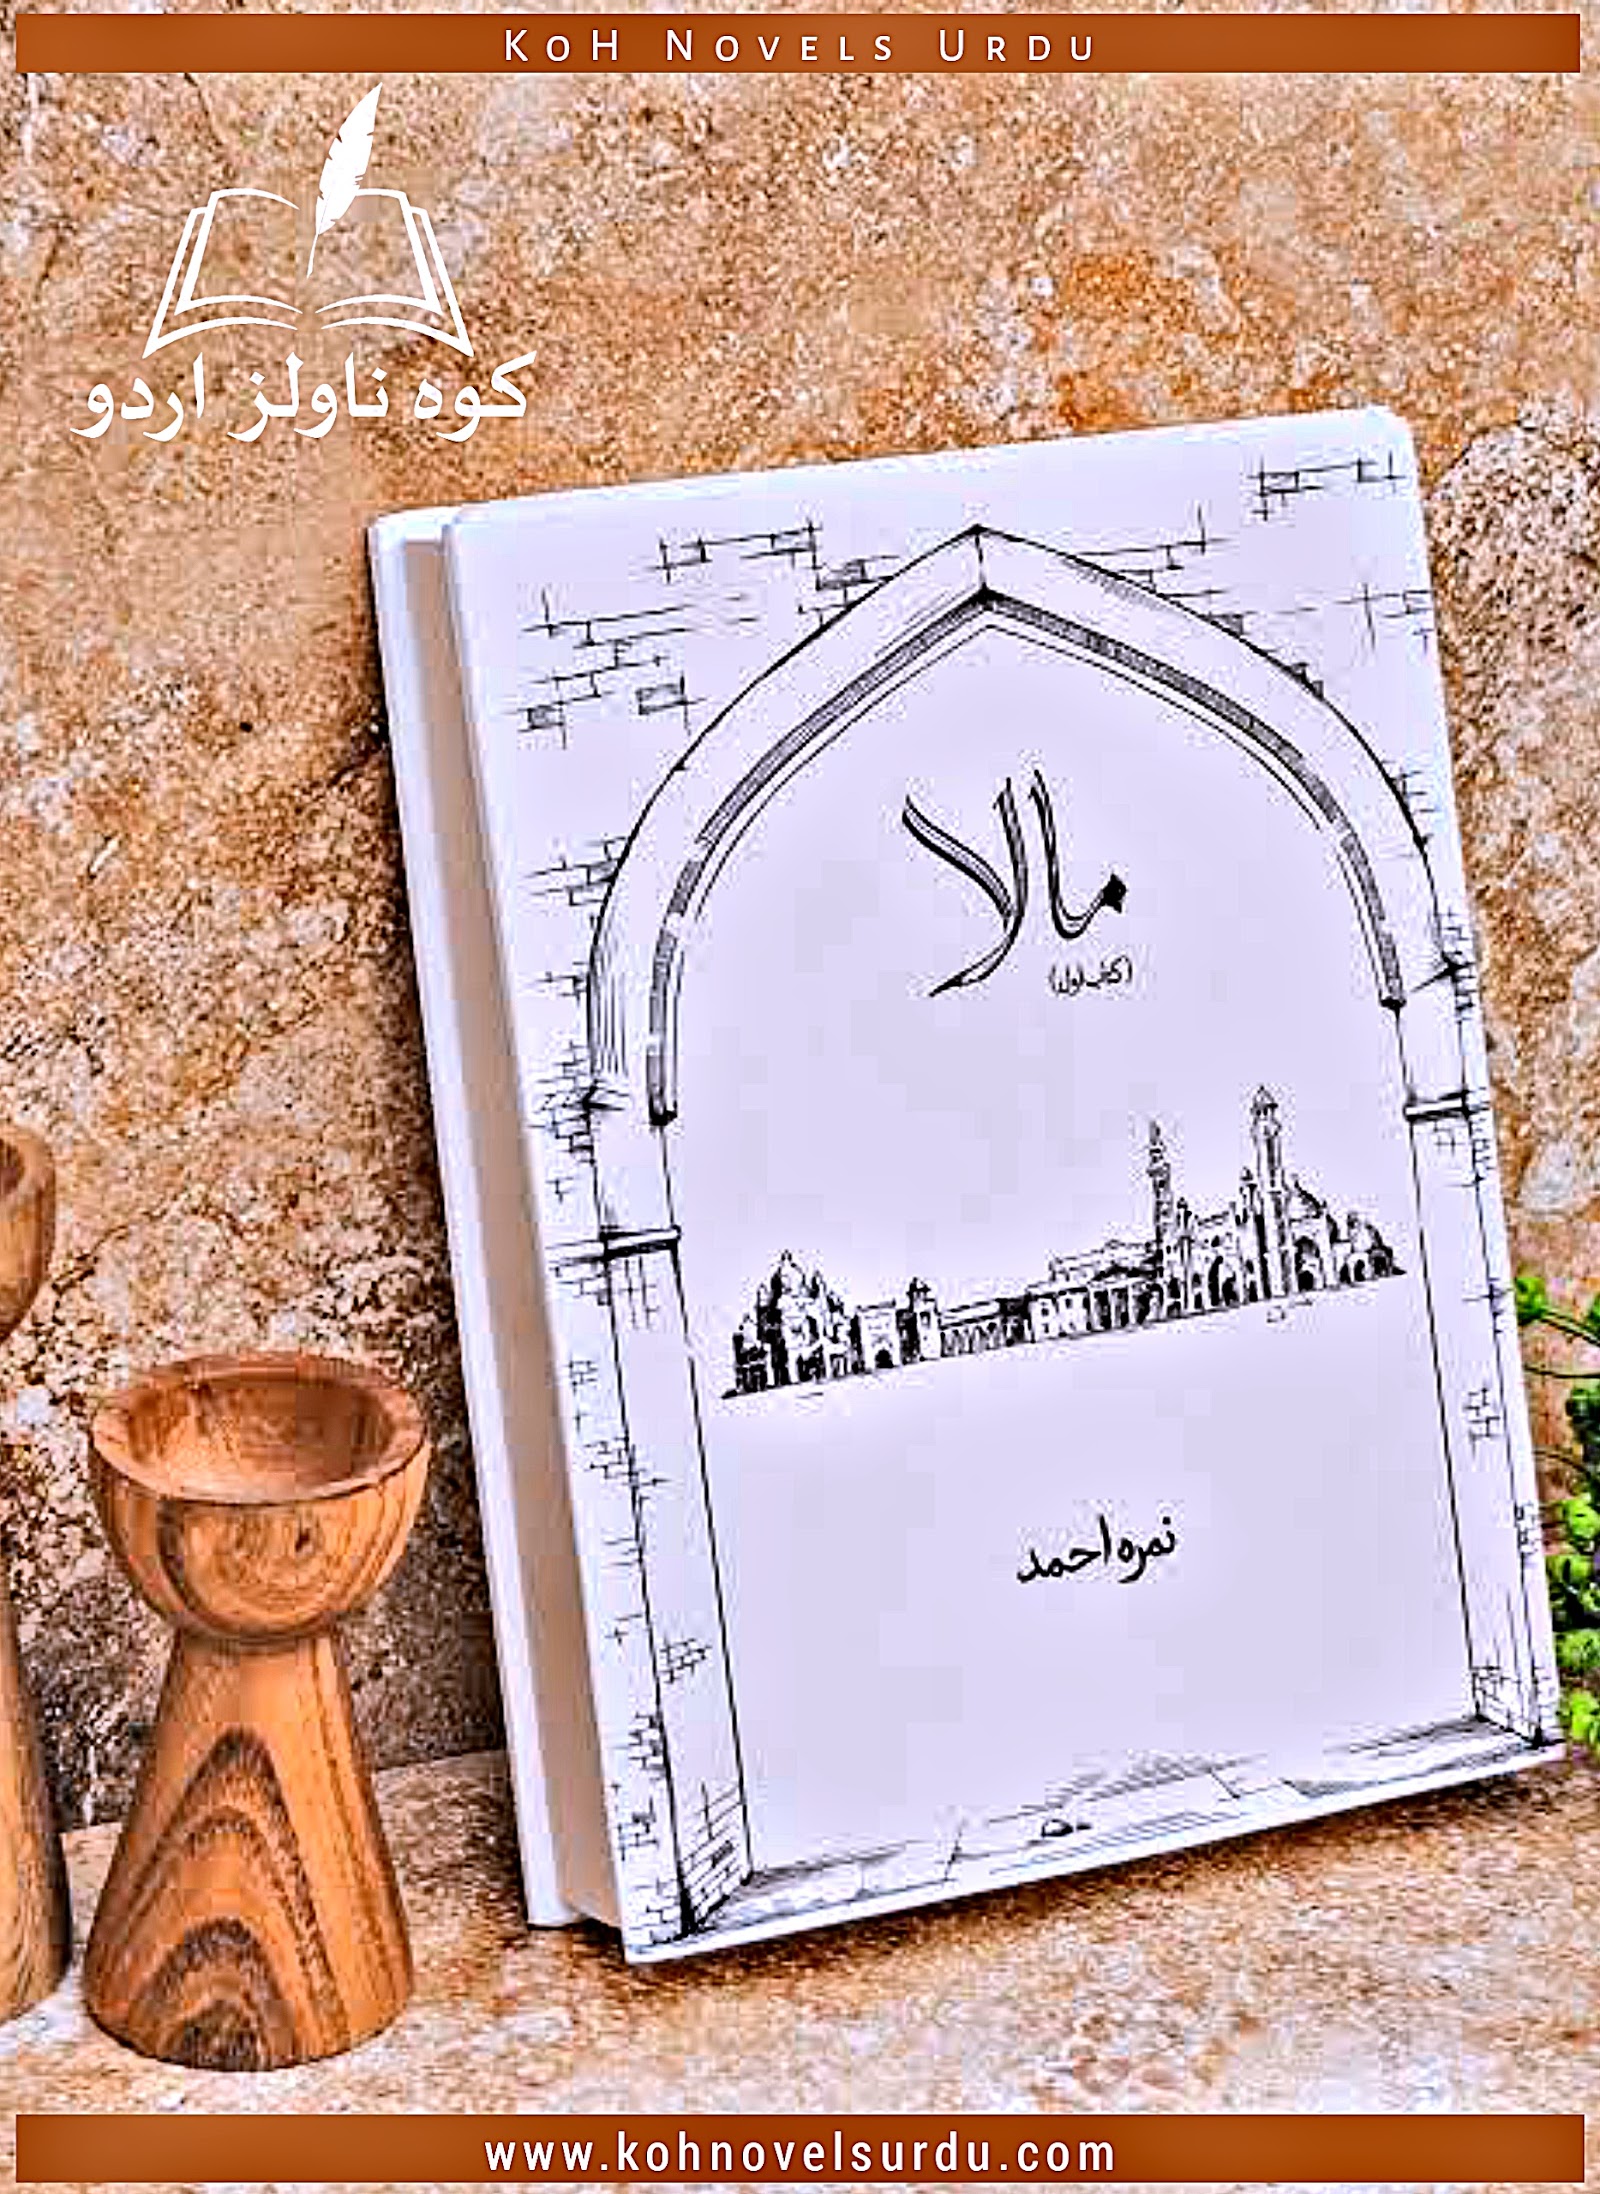 KOH NOVELS URDU
کوہ ناولز اردو
مالا
(کتاب اول)
نمرہ احمد
www.kohnovelsurdu.com